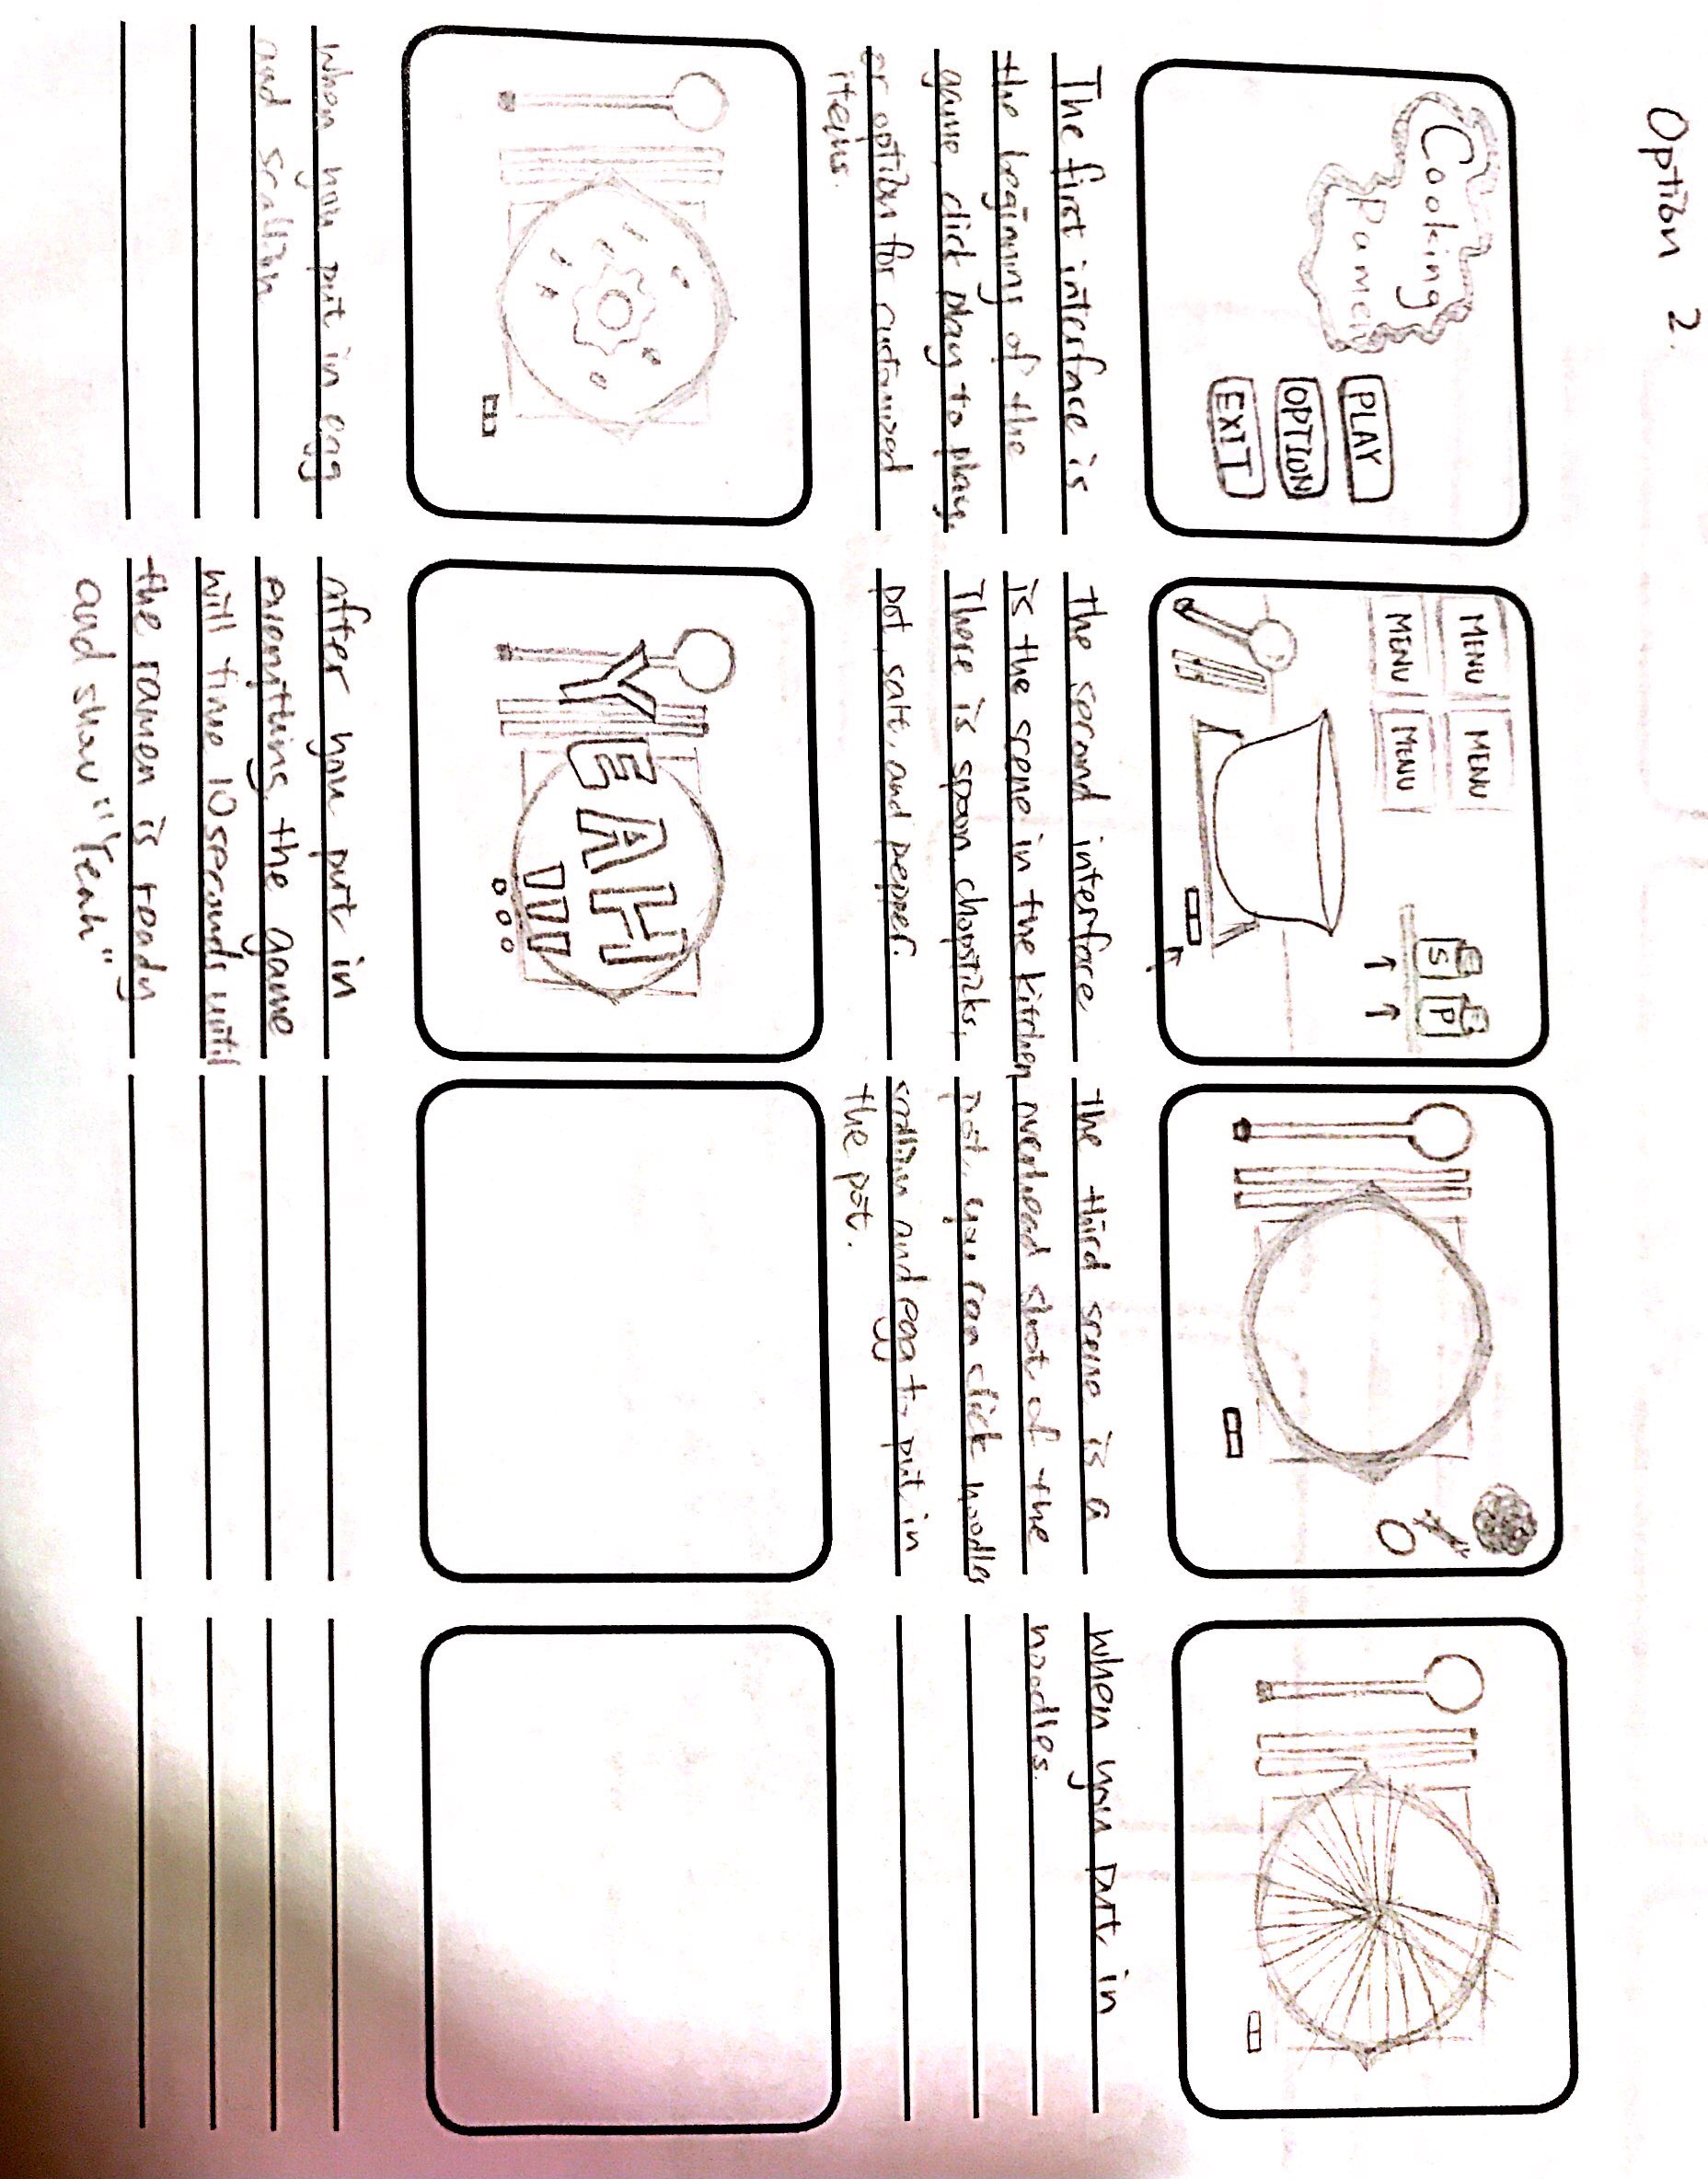 Option 2.
Cooking
Ramen
PLAY
OPTION
EXIT
MENU MENU
MENU MENU
S P
The first interface is
the beginning of the
game, click play to play,
or option for customized
items.
the second interface
is the scene in the kitchen
There is spoon, chopsticks,
pot, salt, and pepper.
the third scene is a
overhead shot of the
pot, you can click noodles
scallion and egg to put in
the pot.
when you put in
noodles.
YEAH
!!!
when you put in egg
and scallion
After you put in
everything, the game
will time 10 seconds until
the ramen is ready
and show "Yeah"